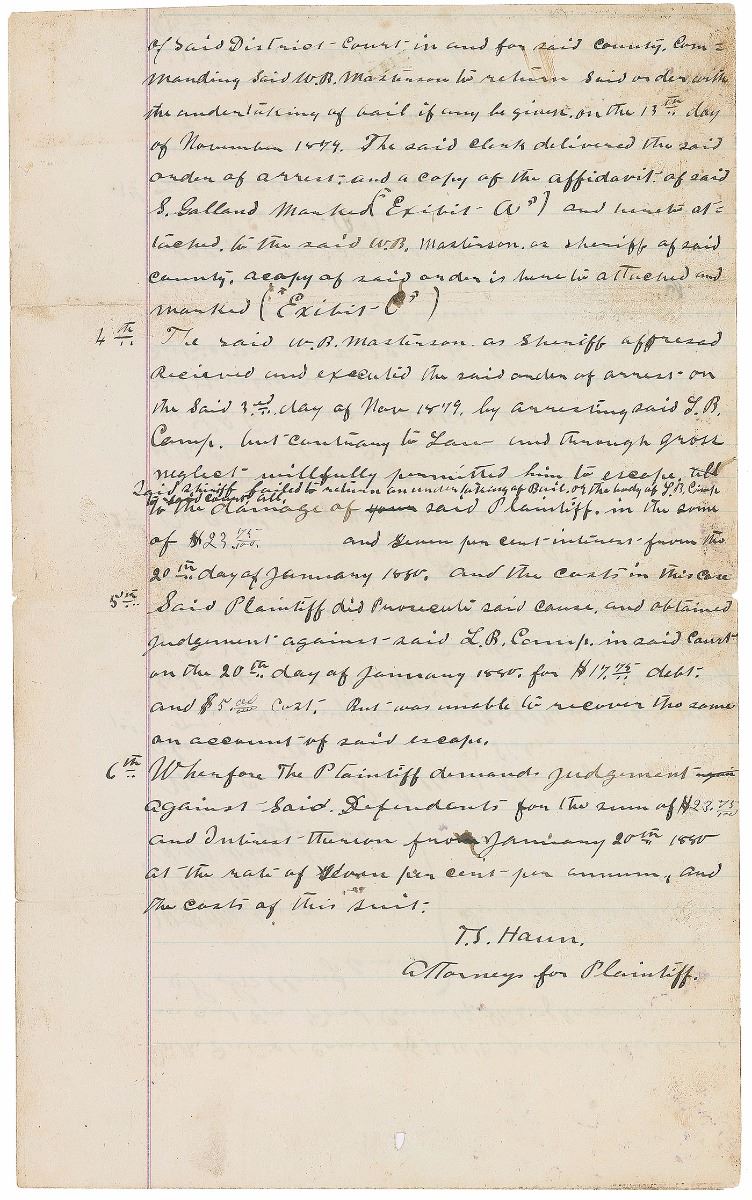 of Said District Court in and for said county. Com=
manding Said W.B. Masterson to return said order with
the undertaking of bail if any be given. on the 13th day
of November 1879. The said clerk delivered the said
order of arrest. and a copy of the affidavit of said
S. Galland Marked ("Exibit A") and hereto at=
tached. to the said W.B. Masterson. as sheriff of said
county. a copy of said order is hereto attached and
marked ("Exibit C")
4th The said W.B. Masterson as Sheriff affresad
Recieved and executed the said order of arrest on
the Said 3rd day of Nov 1879. by arresting said L.B.
Camp. but contrary to Law and through gross
neglect willfully permitted him to escape. all
Said sheriff failed to return an undertaking of Bail. or the body of L.B. Camp
to said court at all.
to the damage of said Plaintiff. in the sum
of $23 75/100. and seven per cent interest from the
20th day of January 1880. and the costs in this case
5th Said Plaintiff did Prosecute said cause. and obtained
judgement against said L.B. Camp. in said Court
on the 20th day of January 1880. for $17.75 debt.
and $5. cost. But was unable to recover the same
on account of said escape.
6th Wherfore The Plaintiff demands judgement again
against Said Defendants for the sum of $23.75/100
and Interest thereon from January 20th 1880
at the rate of seven per cent per annum, and
the costs of this suit.
T.S. Haun.
Attorneys for Plaintiff.